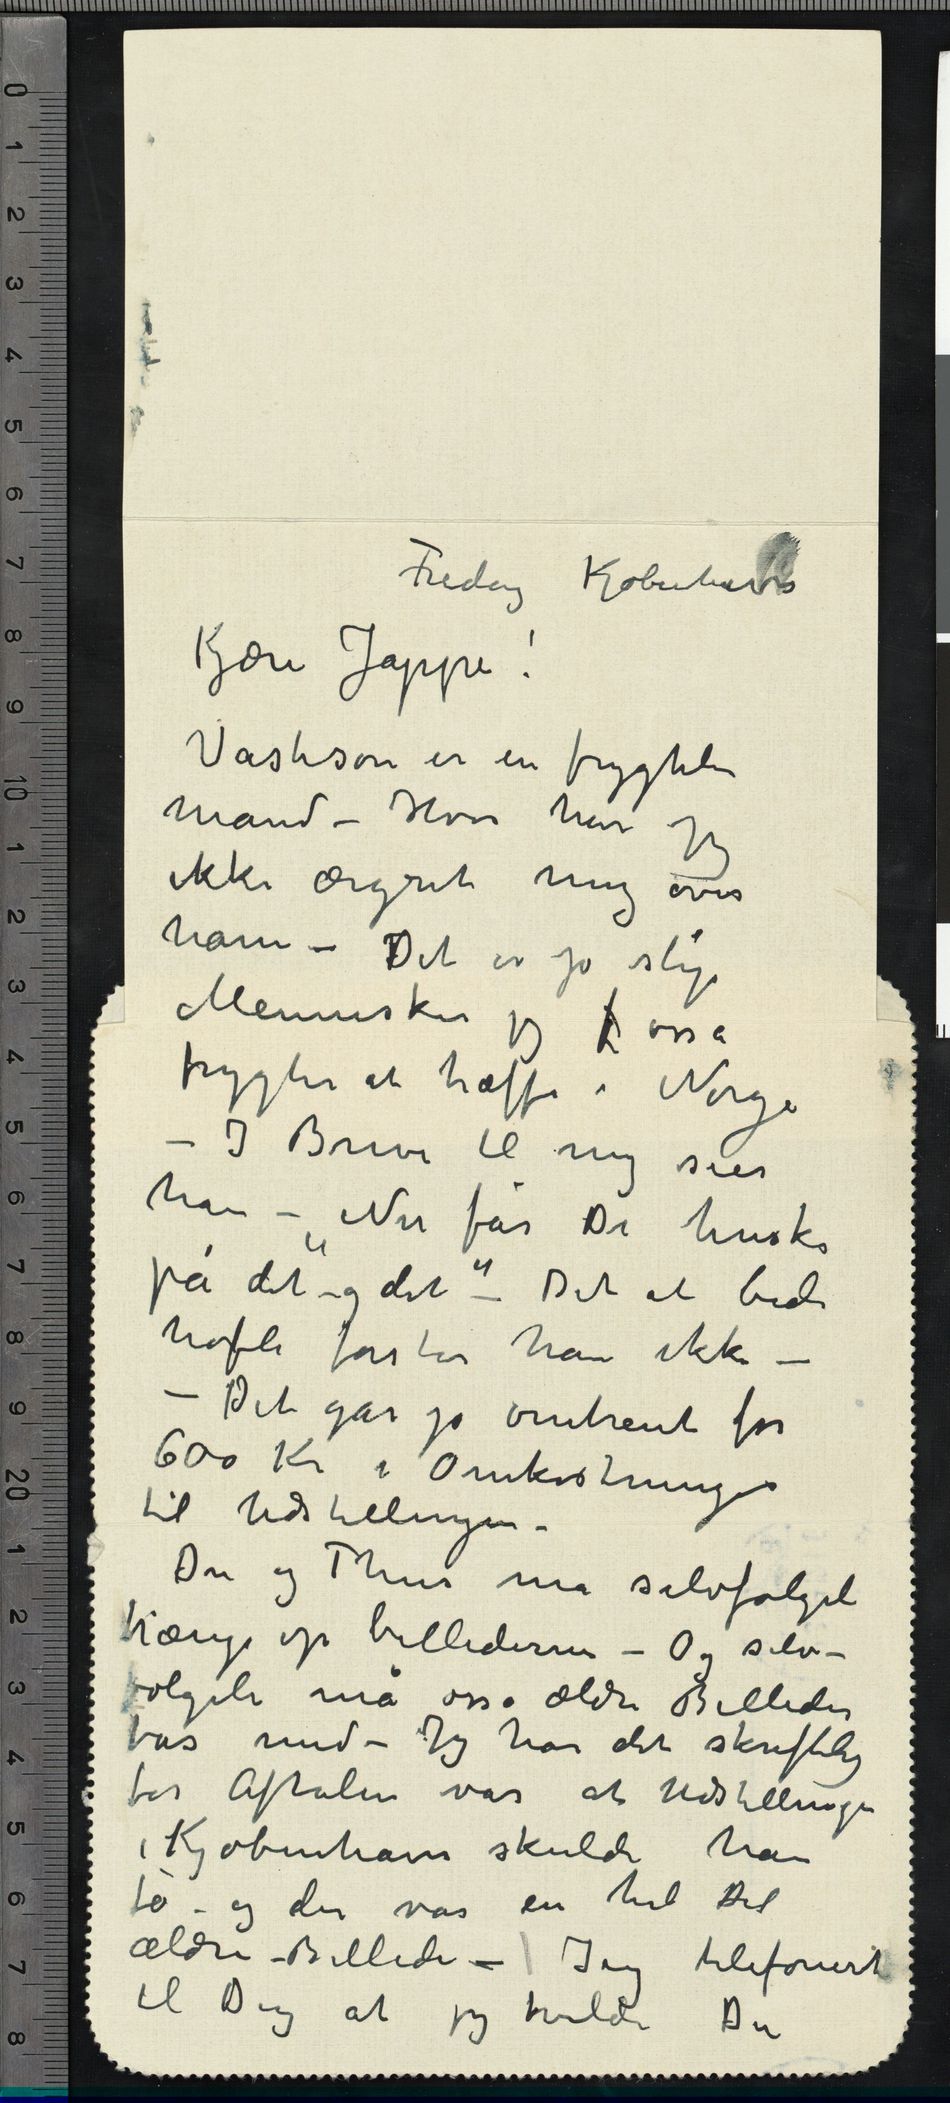 Fredag Kjøbenhavn
Kjære Jappe!
Vastesøn er en frygtelig
mand – Hvor har jeg
ikke ærgret mig over
ham – Det er jo slige
Mennesker jeg også
frygter at træffe i Norge
– I Breve til mig sier
han – „Nu får De huske
på det og det" – Det at bede
høfli forstår han ikke –
– Det går jo omtrent for
600 Kr i Omkostninger
til Udstillingen –
Du og Thiis må selvfølgeli
hænge op billederne – Og selv-
følgeli må osså ældre Billeder
tas med – Jeg har det skriftlig
for Aftalen var at Udstillingen
i Kjøbenhavn skulde han
få – og der var en hel Del
ældre Billeder – Jeg telefonerte
til Dig at jeg vilde Du